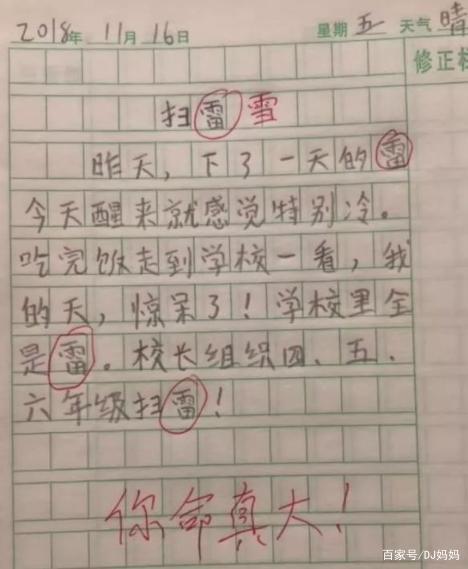 2018年 11月 16日 星期 五 天气 晴
修正栏
扫雷 雪
昨天，下了一天的雷
今天醒来就感觉特别冷。
吃完饭走到学校一看，我
的天，惊呆了！学校里全
是雷。校长组织四、五、
六年级扫雷！
你命真大！
百家号/DJ妈妈